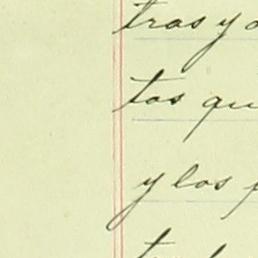 tras y
tos qu
y los